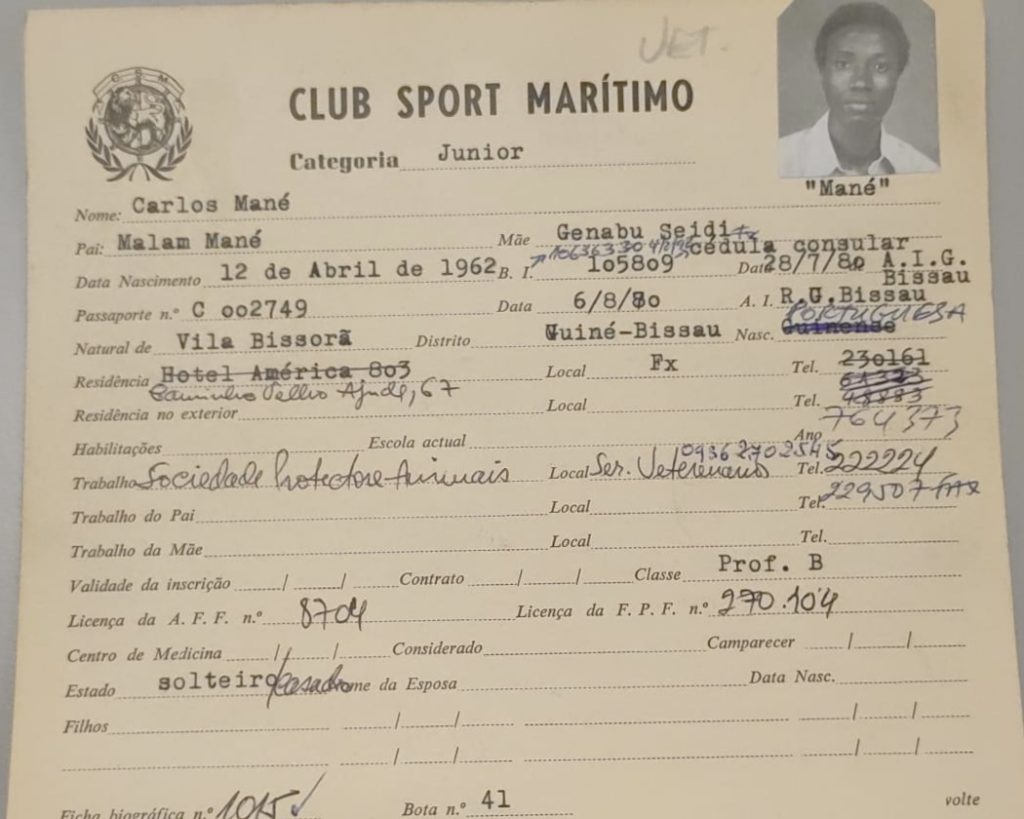 VET.
C S M
CLUB SPORT MARÍTIMO
Categoria Junior
"Mané"
Nome: Carlos Mané
Pai: Malam Mané Mãe Genabu Seidi
10636330 cédula consular
Data Nascimento 12 de Abril de 1962 B. I. 105809 Data 28/7/80 A.I.G. Bissau
Passaporte n.º C oo2749 Data 6/8/80 A. I. R.G.Bissau
PORTUGUESA
Natural de Vila Bissorã Distrito Guiné-Bissau Nasc. Guinense
Residência Hotel América 803 Local Fx Tel. 230161
Caminho Velho Ajuda, 67 61323
Residência no exterior Local Tel. 48883
764373
Habilitações Escola actual Ano
09362702545
Trabalho Sociedade Protectora Animais Local Ser. Veterenario Tel. 222224
Trabalho do Pai Local Tel. 229507 FAX
Trabalho da Mãe Local Tel.
Validade da inscrição / / Contrato / / Classe Prof. B
Licença da A. F. F. n.º 8704 Licença da F. P. F. n.º 270.104
Centro de Medicina / / Considerado Camparecer / /
Estado solteiro/casado Nome da Esposa Data Nasc.
Filhos / / / /
/ / / /
Ficha biográfica n.º 1015 ✓ Bota n.º 41 volte